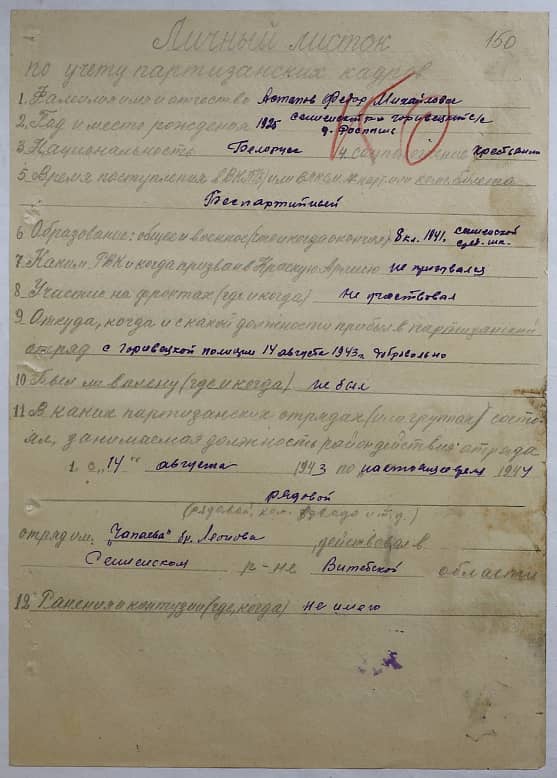 150
Личный листок
по учету партизанских кадров
1. Фамилия имя и отчество Астапов Федор Михайлович
2. Год и место рождения 1925 Сенненск р-н Горивецкий с/с
д.
3. Национальность Белорус 4. соцположение крестьянин
5. Время поступления в ВКП(б) или ВЛКСМ № парт. или комс. билета
Беспартийный
6. Образование: общее и военное (что и когда окончил) 8 кл. 1941, сенненской
сред. шк.
7. Каким РВК и когда призван в Красную Армию не призвался
8. Участие на фронтах (где и когда) Не участвовал
9. Откуда, когда и с какой должности прибыл в партизанский
отряд с Горивецкой полиции 14 августа 1943 г. добровольно
10 Был ли в плену (где и когда) не был
11 В каких партизанских отрядах (или группах) состо-
ял, занимаемая должность район действия отряда
1. с „14“ августа 1943 по настоящее время 1944
рядовой
(рядовой, ком. взвода и т.д.)
отряд им. "Чапаева" бр. Леонова действовал в
Сенненском р-не Витебской области
12 Ранения и контузии (где, когда) не имею